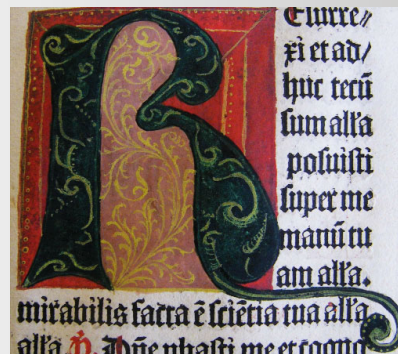 R Esurre⸗
xi et ad/
huc tecū
sum alľa
posuisti
super me
manū tu
am alľa.
mirabilis facta ē sciētia tua alľa
alľa. Dn̄e ꝓbasti me et cognoꝰ